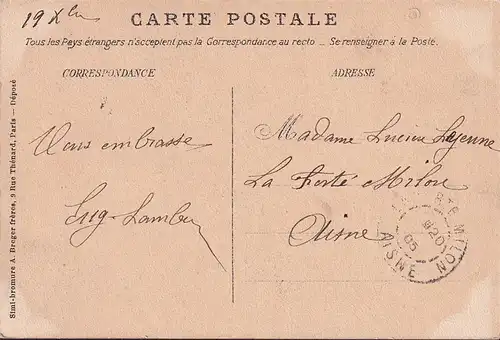 19 Xbre
CARTE POSTALE
Tous les Pays étrangers n'acceptent pas la Correspondance au recto _ Se renseigner à la Poste.
CORRESPONDANCE
ADRESSE
Vous embrasse
Madame Lucien Lejeune
La Ferté Milon
Aisne
TÉ MILON
20
05
AISNE
Simi-bromure A. Breger frères, 9 Rue Thénard, Paris — Déposé